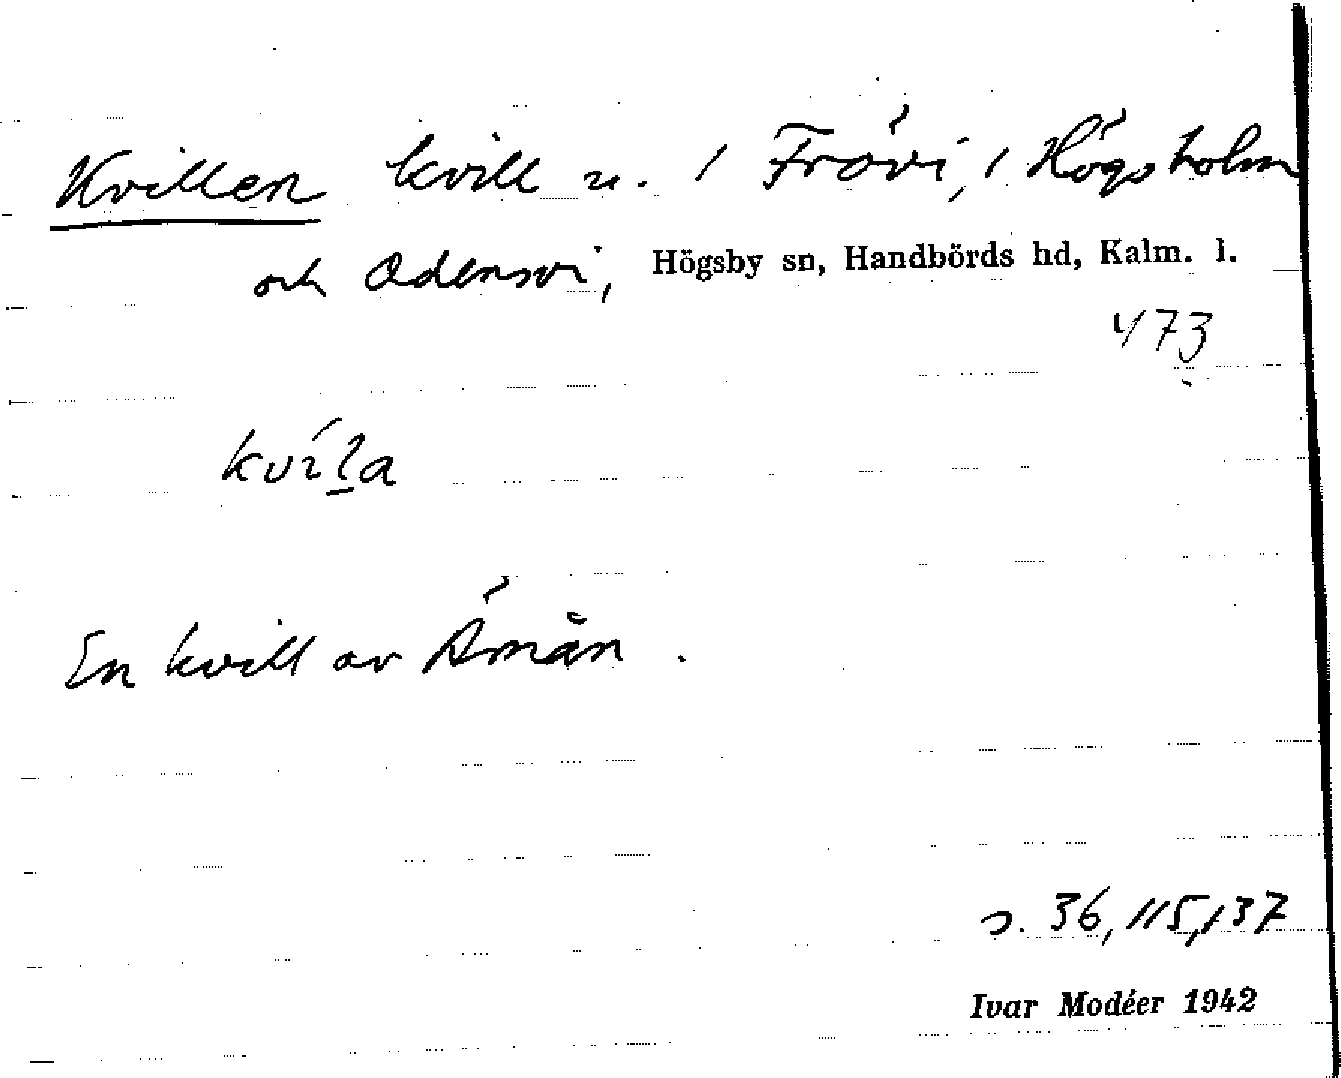 Kvillen kvill u. / Frövi, / Högsholm
och Odensvi, Högsby sn, Handbörds hd, Kalm. l.
473
kvíla
En kvill av Åmån.
s. 36, 115, 137
Ivar Modéer 1942